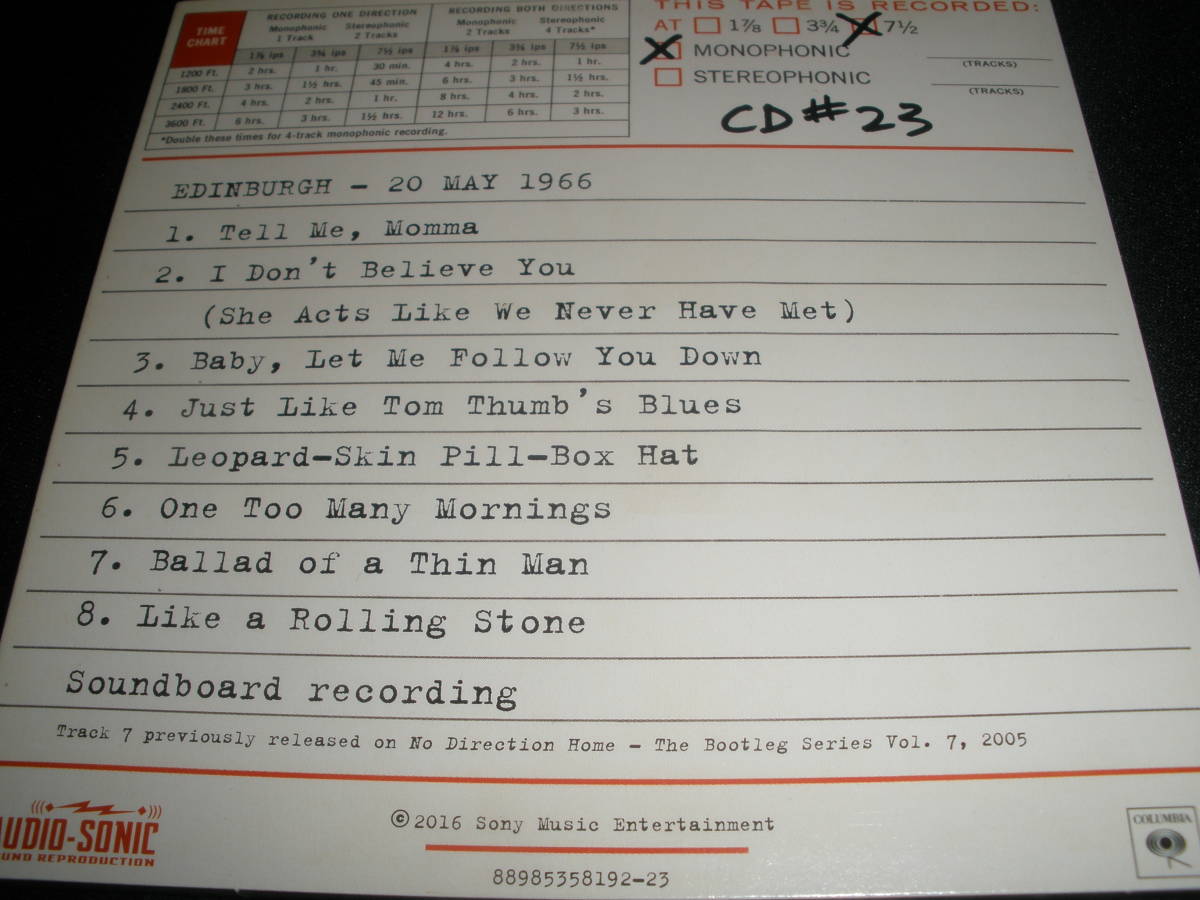 TIME CHART
RECORDING ONE DIRECTION
RECORDING BOTH DIRECTIONS
Monophonic 1 Track
Stereophonic 2 Tracks
Monophonic 2 Tracks
Stereophonic 4 Tracks*
1⅞ ips 3¾ ips 7½ ips 1⅞ ips 3¾ ips 7½ ips
1200 Ft. 2 hrs. 1 hr. 30 min. 4 hrs. 2 hrs. 1 hr.
1800 Ft. 3 hrs. 1½ hrs. 45 min. 6 hrs. 3 hrs. 1½ hrs.
2400 Ft. 4 hrs. 2 hrs. 1 hr. 8 hrs. 4 hrs. 2 hrs.
3600 Ft. 6 hrs. 3 hrs. 1½ hrs. 12 hrs. 6 hrs. 3 hrs.
*Double these times for 4-track monophonic recording.
THIS TAPE IS RECORDED:
AT 1⅞ 3¾ 7½
MONOPHONIC
(TRACKS)
STEREOPHONIC
(TRACKS)
CD#23
EDINBURGH - 20 MAY 1966
1. Tell Me, Momma
2. I Don't Believe You
(She Acts Like We Never Have Met)
3. Baby, Let Me Follow You Down
4. Just Like Tom Thumb's Blues
5. Leopard-Skin Pill-Box Hat
6. One Too Many Mornings
7. Ballad of a Thin Man
8. Like a Rolling Stone
Soundboard recording
Track 7 previously released on No Direction Home - The Bootleg Series Vol. 7, 2005
AUDIO-SONIC
OUND REPRODUCTION
©2016 Sony Music Entertainment
88985358192-23
COLUMBIA